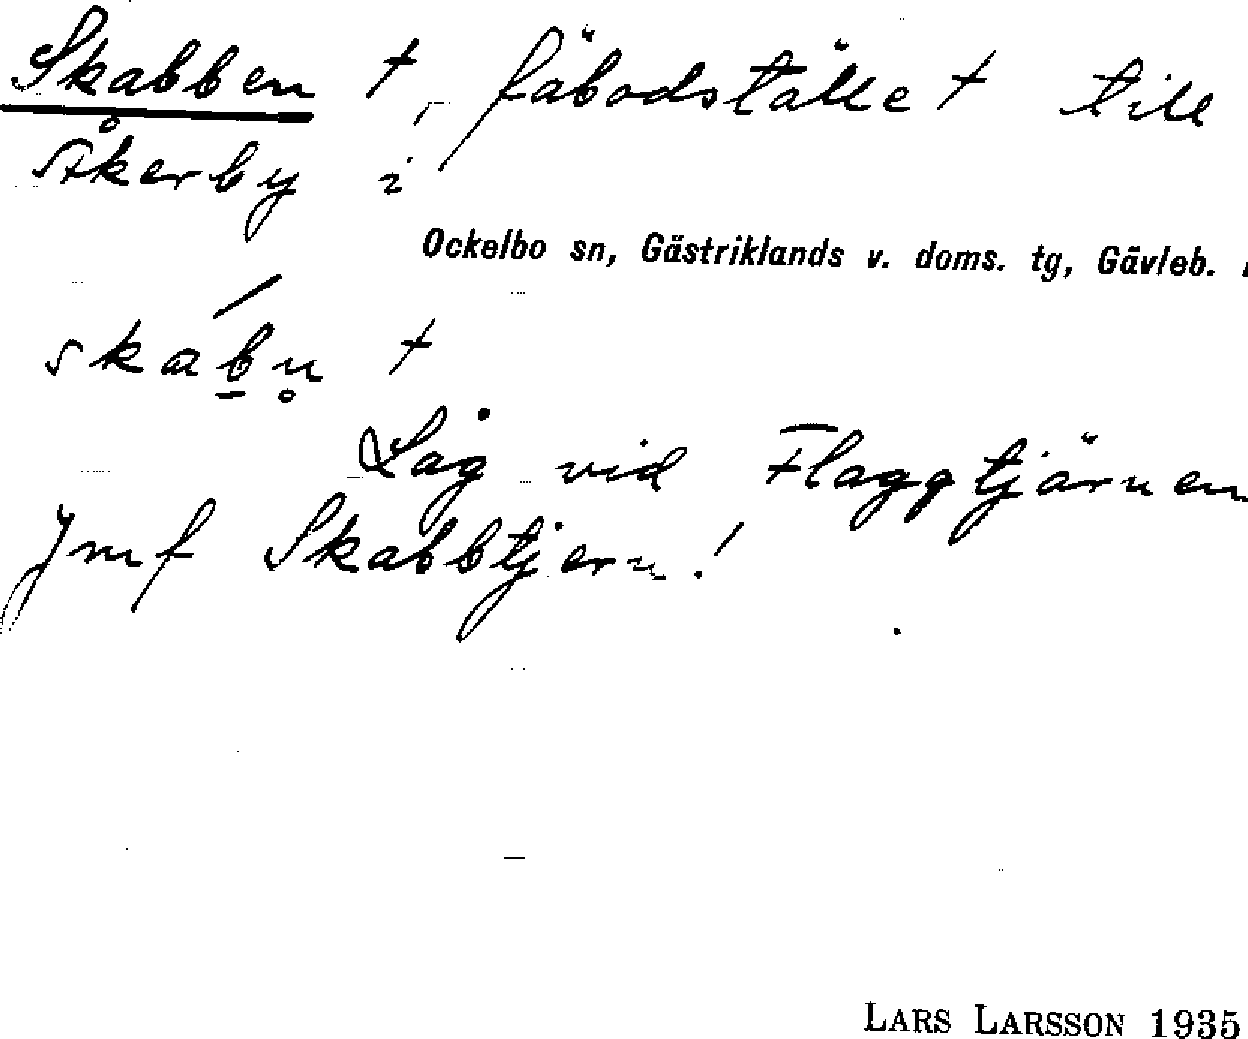 Skabben †, fäbodställe † till
Åkerby i
Ockelbo sn, Gästriklands v. doms. tg, Gävleb.
skabn̥ †
Låg vid Flaggtjärnen
Jmf Skabbtjern!
LARS LARSSON 1935